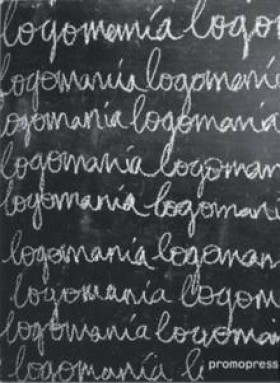 logomanía logo
logomanía logomaní
logomanía logomanía
logomanía logoman
logomanía logomaní
logomanía logoman
logomanía logom
logomanía logoman
logomanía l
promopress